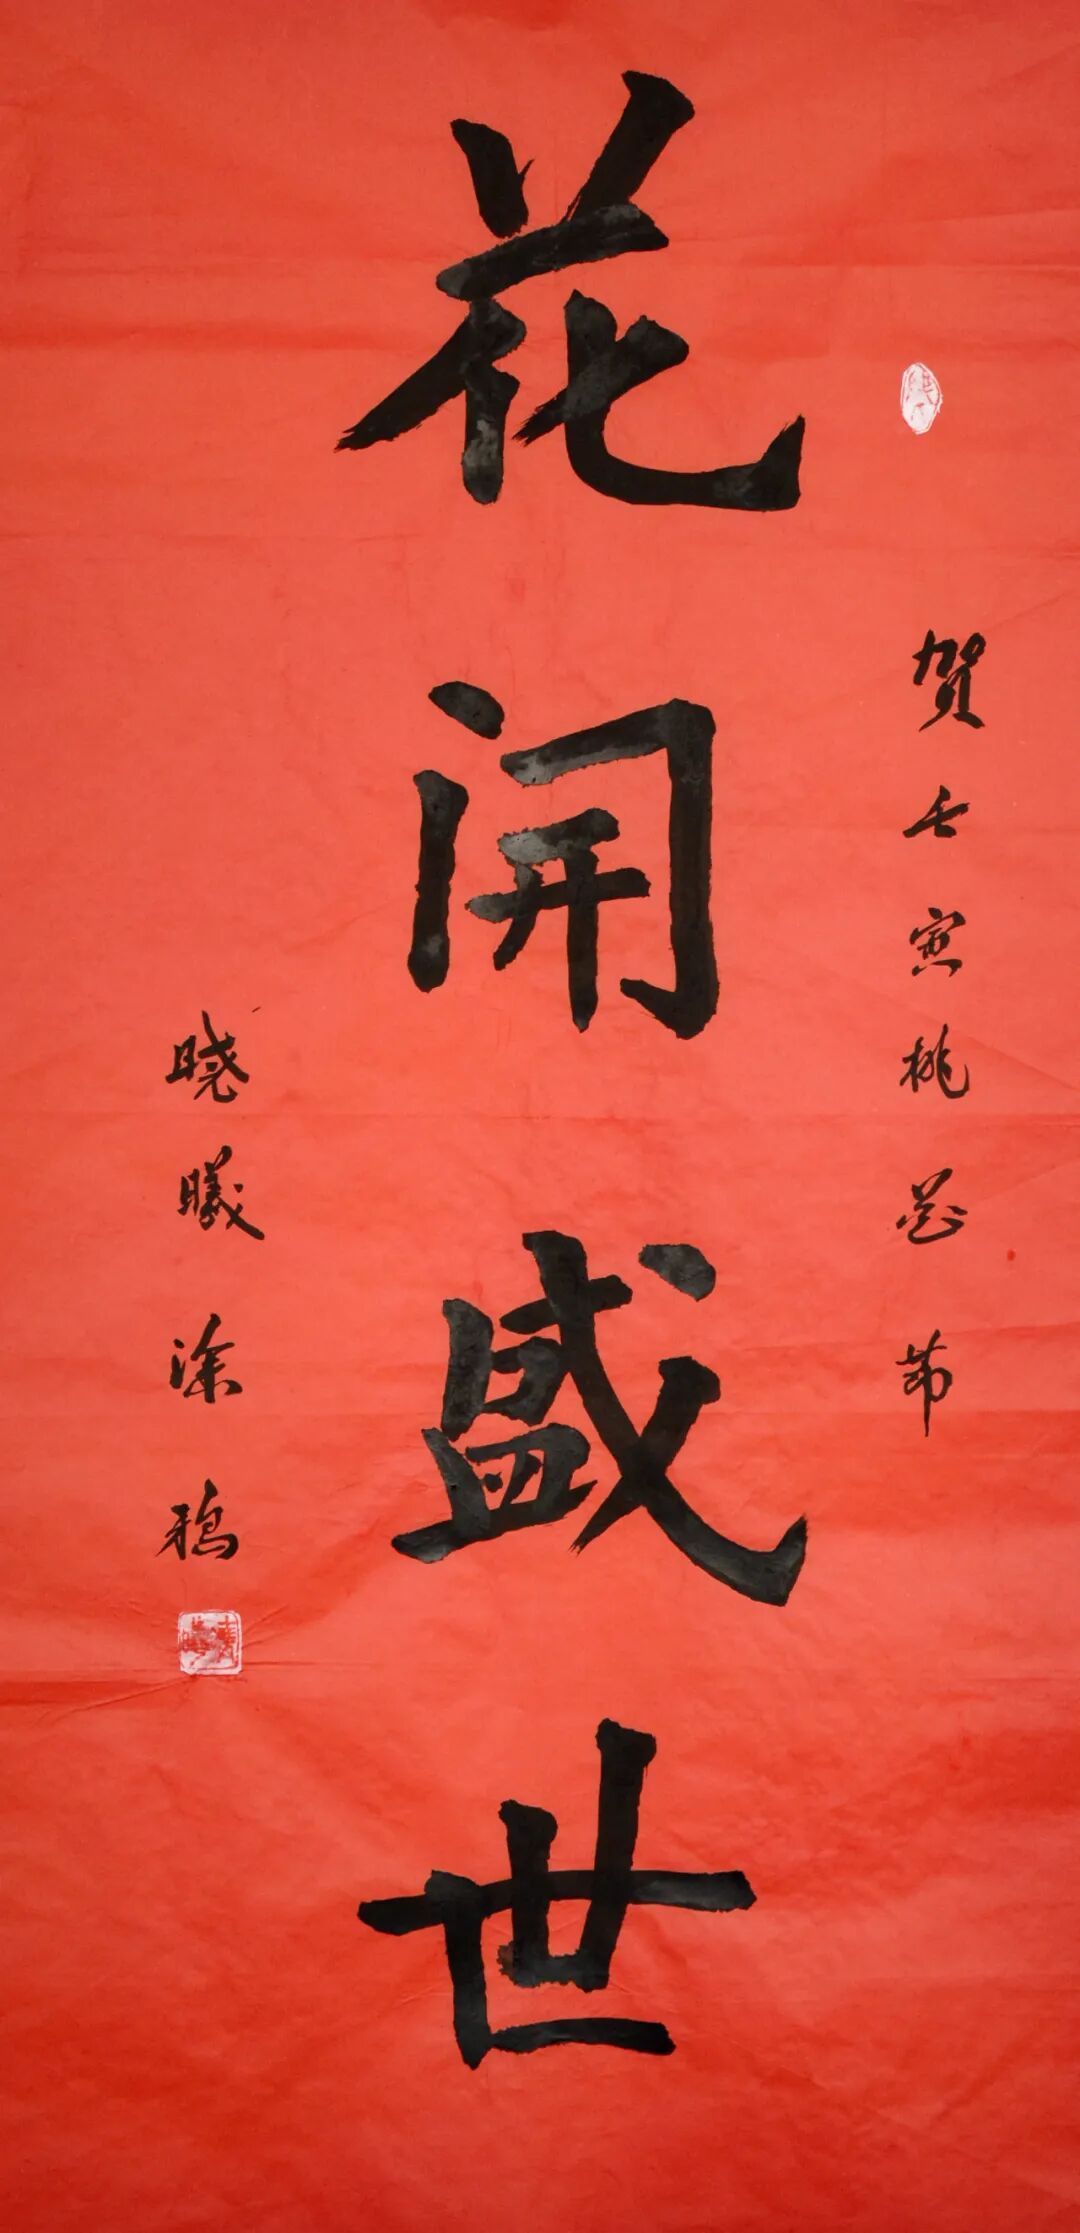 贺壬寅桃花节
花开盛世
晓曦涂鸦